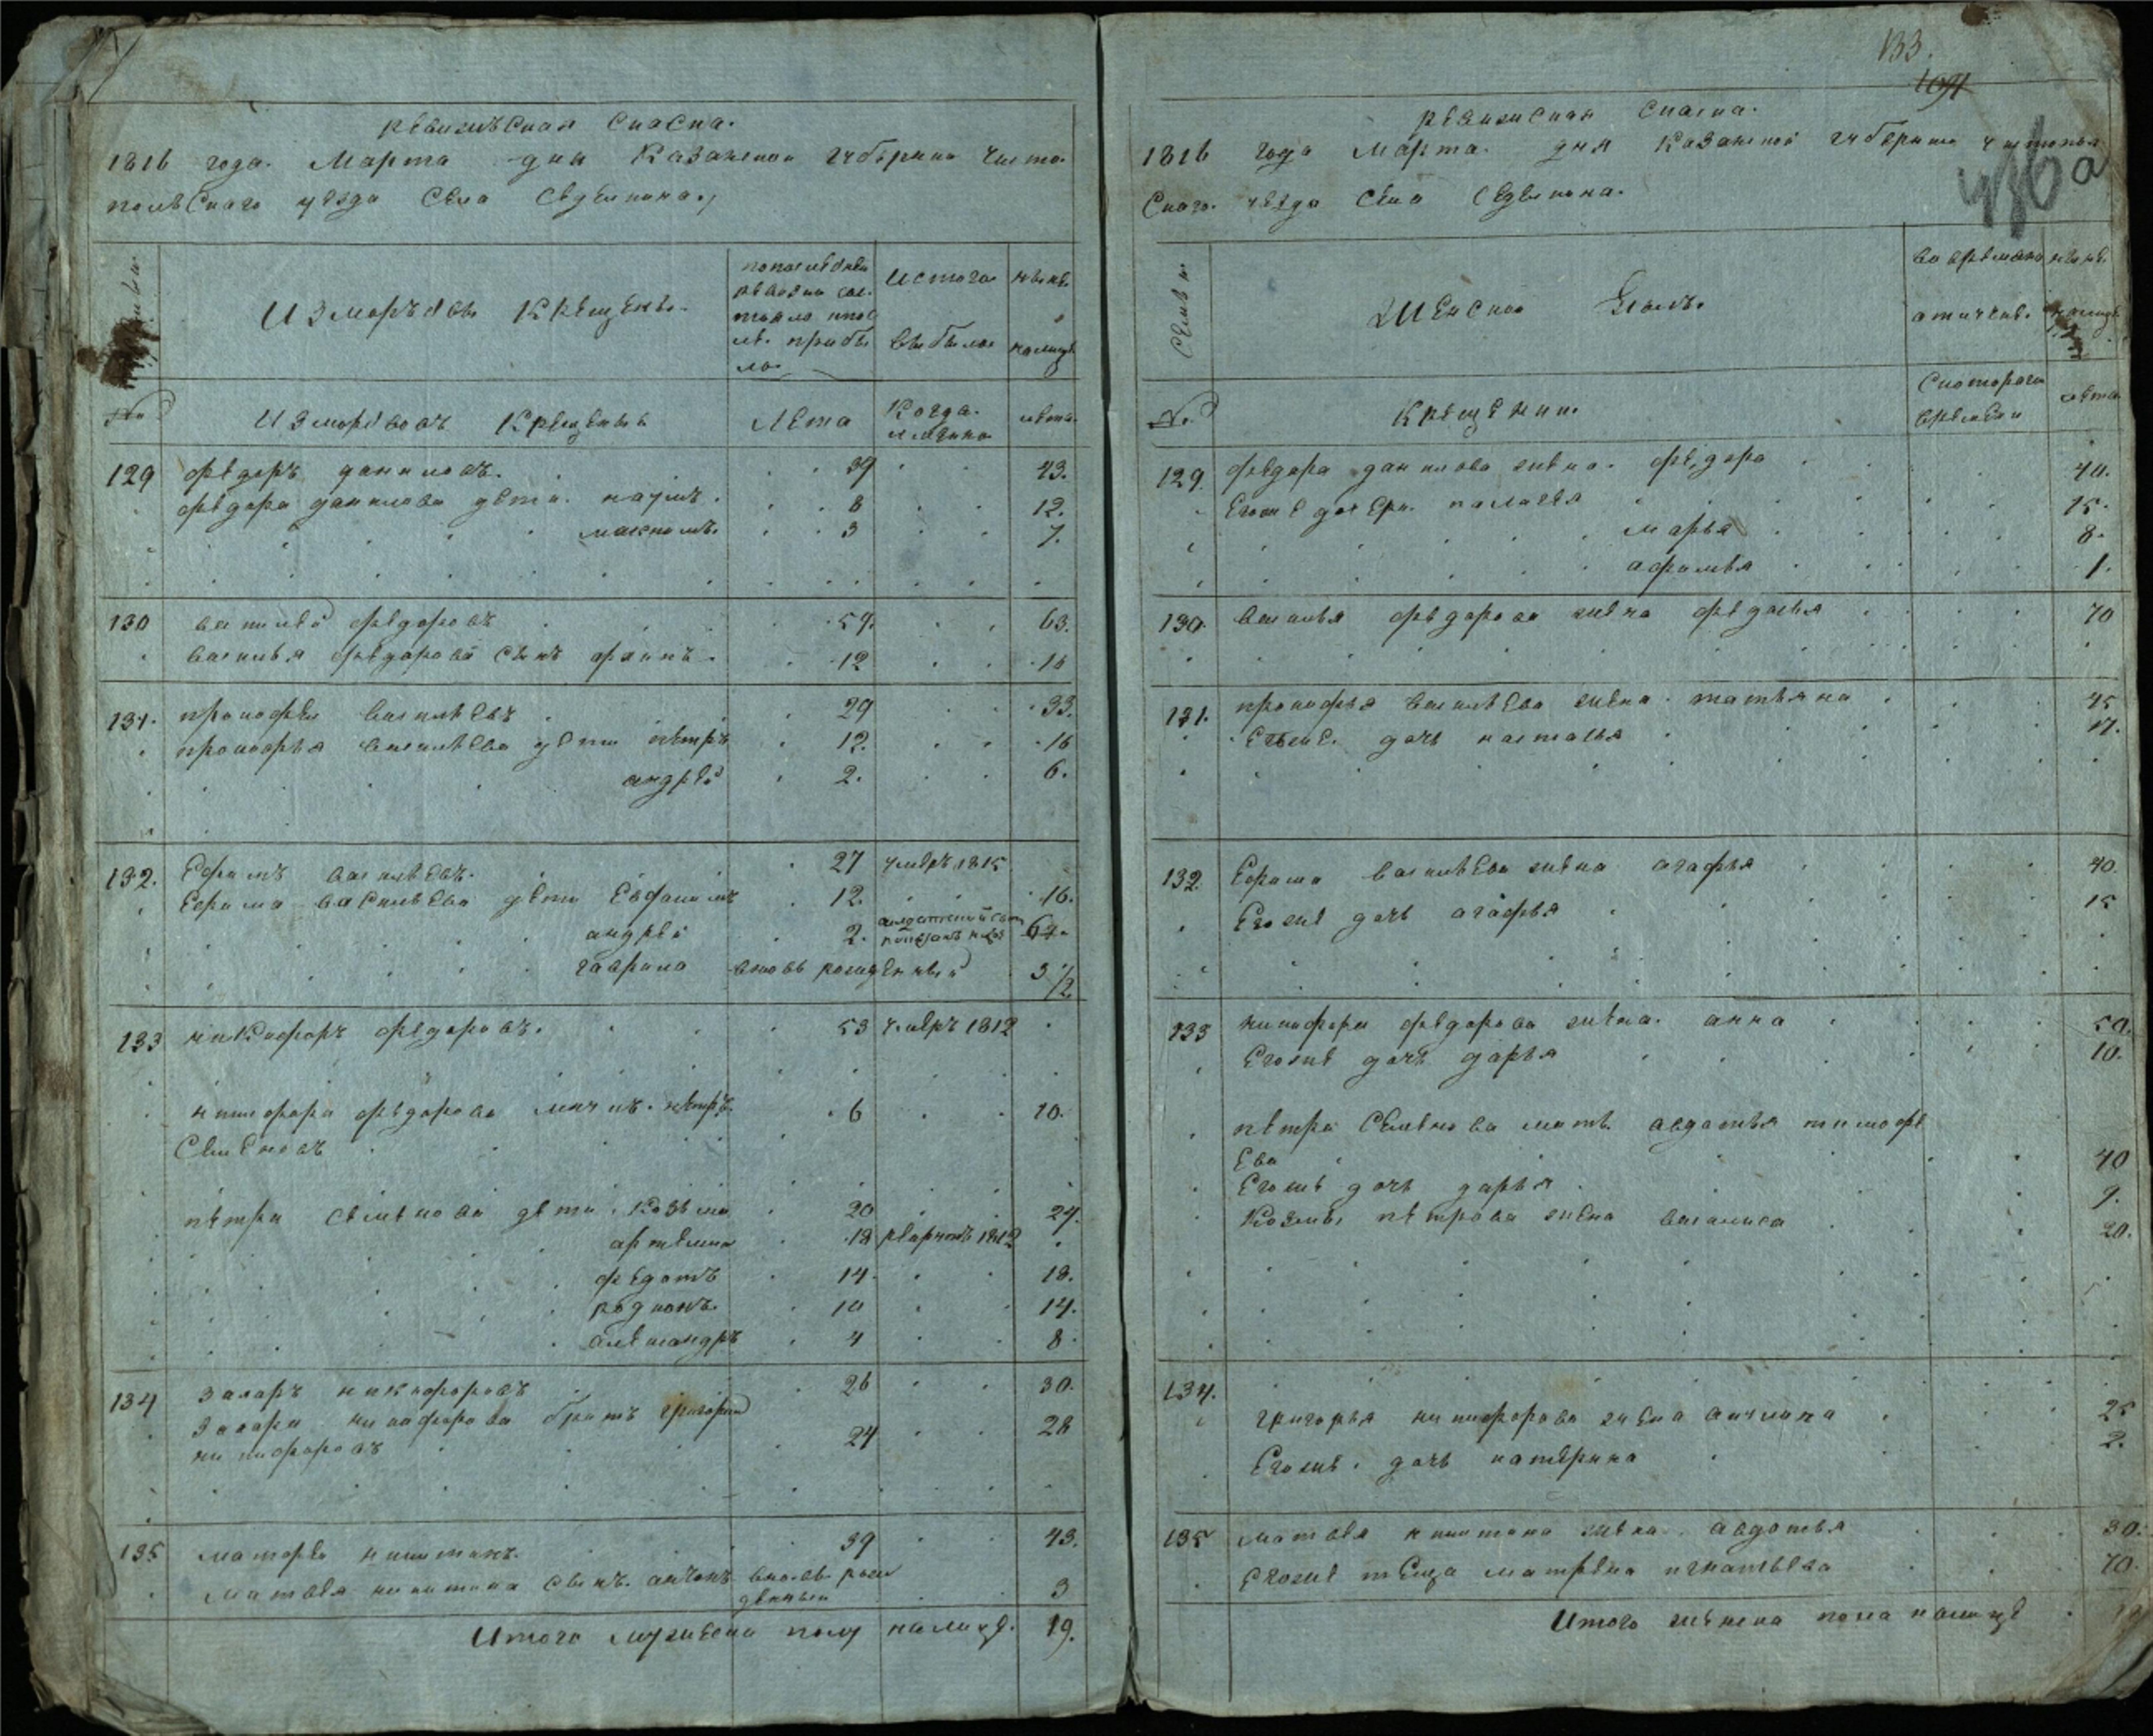 ревижъская сказка.
1816 года. Марта дня Казанской губерни чисто
польскаго уезда села Седелкина.
Измордвы крещены.
по последней ревизии состояло и после прибыло
из того выбыло
ныне налицо
№
Измордвовъ крещеныя
лета
когда имянно
лета
129 федоръ даниловъ. 39 43.
федора данилова дети. наумъ. 8 12.
максимъ. 3 7.
130 василей федоровъ 59. 63.
василья федорова сынъ филипъ. 12 16
131. прокофей васильевъ 29 33.
прокофья васильева дети петръ 12. 16
андрей 2. 6.
132. Ефимъ васильевъ. 27 умеръ 1815
Ефима васильева дети 12. 16.
андрей 2. 6
гаврила вновь рожденный 3 1/2
133 никифоръ федоровъ. 53 умеръ 1812
никифора федорова петръ 6 10.
Семеновъ
петра семенова дети. козьма 20 24.
артемей 18 рекрутъ 1812
федотъ 14. 18.
родионъ. 10 14.
александръ 4 8
134 захаръ никифоровъ 26 30.
захара никифорова братъ григорей
никифоровъ 24 28
135 матфей никитинъ. 39 43.
матвея никитина сынъ. антонъ вновь рож
денный 3
Итого мужеска полу налицо. 19.
133.
1091
436 а
ревижская сказка.
1816 года Марта. дня казанской губерни чистополь
скаго. уезда села Седелкина.
Семьи
Женской полъ.
во временно отлучке
ныне налицо
№
крещении.
с котораго времени
лета
129. федора данилова жена. федора 40.
Егоже дочери. палагея 15.
марья 8.
афимья 1.
130. василья федорова жена федосья 70
131. прокофья васильева жена. татьяна 45
Егоже. дочь настасья 17.
132. Ефима васильева жена агафья 40.
Егоже дочь агафья 15
133 никифора федорова жена. анна 50.
Егоже дочь дарья 10.
петра Семенова мать. авдотья тимофе
ева 40
Егоже дочь дарья 9.
Козьмы петрова жена василиса 20.
134.
григорья никифорова жена акулина 25
Егоже. дочь катерина 2.
135 матвея никитина жена. авдотья 30.
Егоже теща матрена игнатьева 70.
Итого женска пола налицо